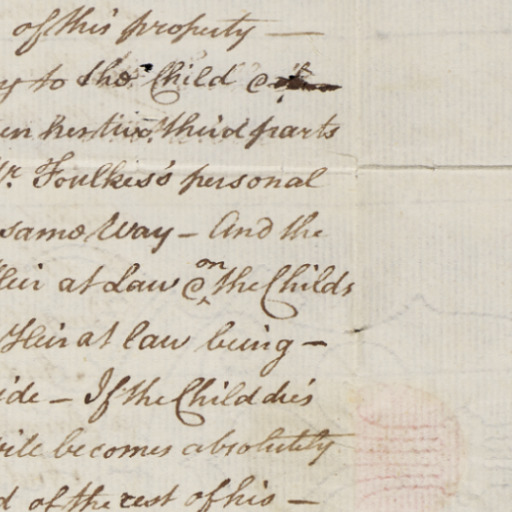 of this property —
to the Child
her two third parts
Mr. Foulkes's personal
same Way – And the
Heir at Law on the Childs
Heir at law being –
ide – If the Child dies
becomes absolutely
d of the rest of his –